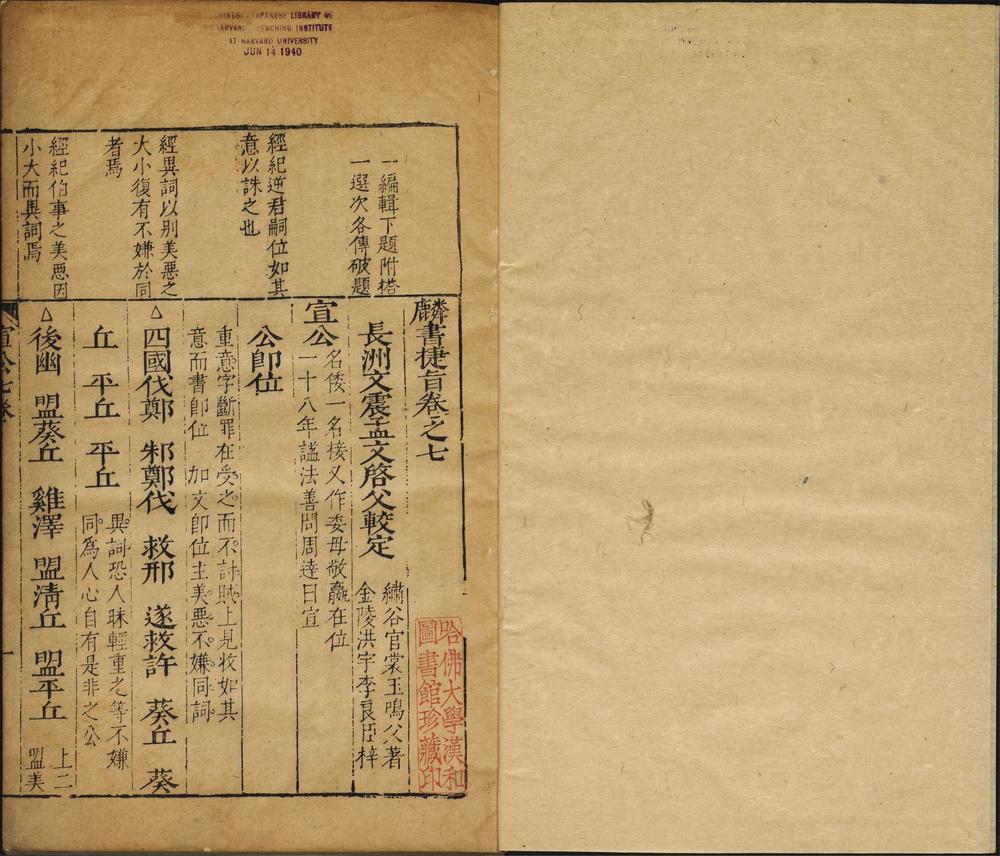 CHINESE JAPANESE LIBRARY OF
HARVARD YENCHING INSTITUTE
AT HARVARD UNIVERSITY
JUN 14 1940
一編輯下題附搭
一選次各傳破題
經紀逆君嗣位如其
意以誅之也
經異詞以别美悪之
大小復有不嫌於同
者焉
經紀伯事之美悪因
小大而異詞焉
麟書捷旨卷之七
長洲文震孟文啓父較定
繡谷官裳玉鳴父著
金陵洪宇李良臣梓
宣公
名倭一名接又作委母敬嬴在位
一十八年謚法善問周達曰宣
公即位
重意字斷罪在受之而不討賊上見收如其
意而書即位 加文即位主美悪不嫌同詞
△四國伐鄭 邾鄭伐 救邢 遂救許 葵丘 葵
丘 平丘 平丘
異詞恐人昧輕重之等不嫌
同爲人心自有是非之公
△後幽 盟葵丘 雞澤 盟清丘 盟平丘
上二
盟美
宣公七卷
一
哈佛大學漢和
圖書館珍藏印